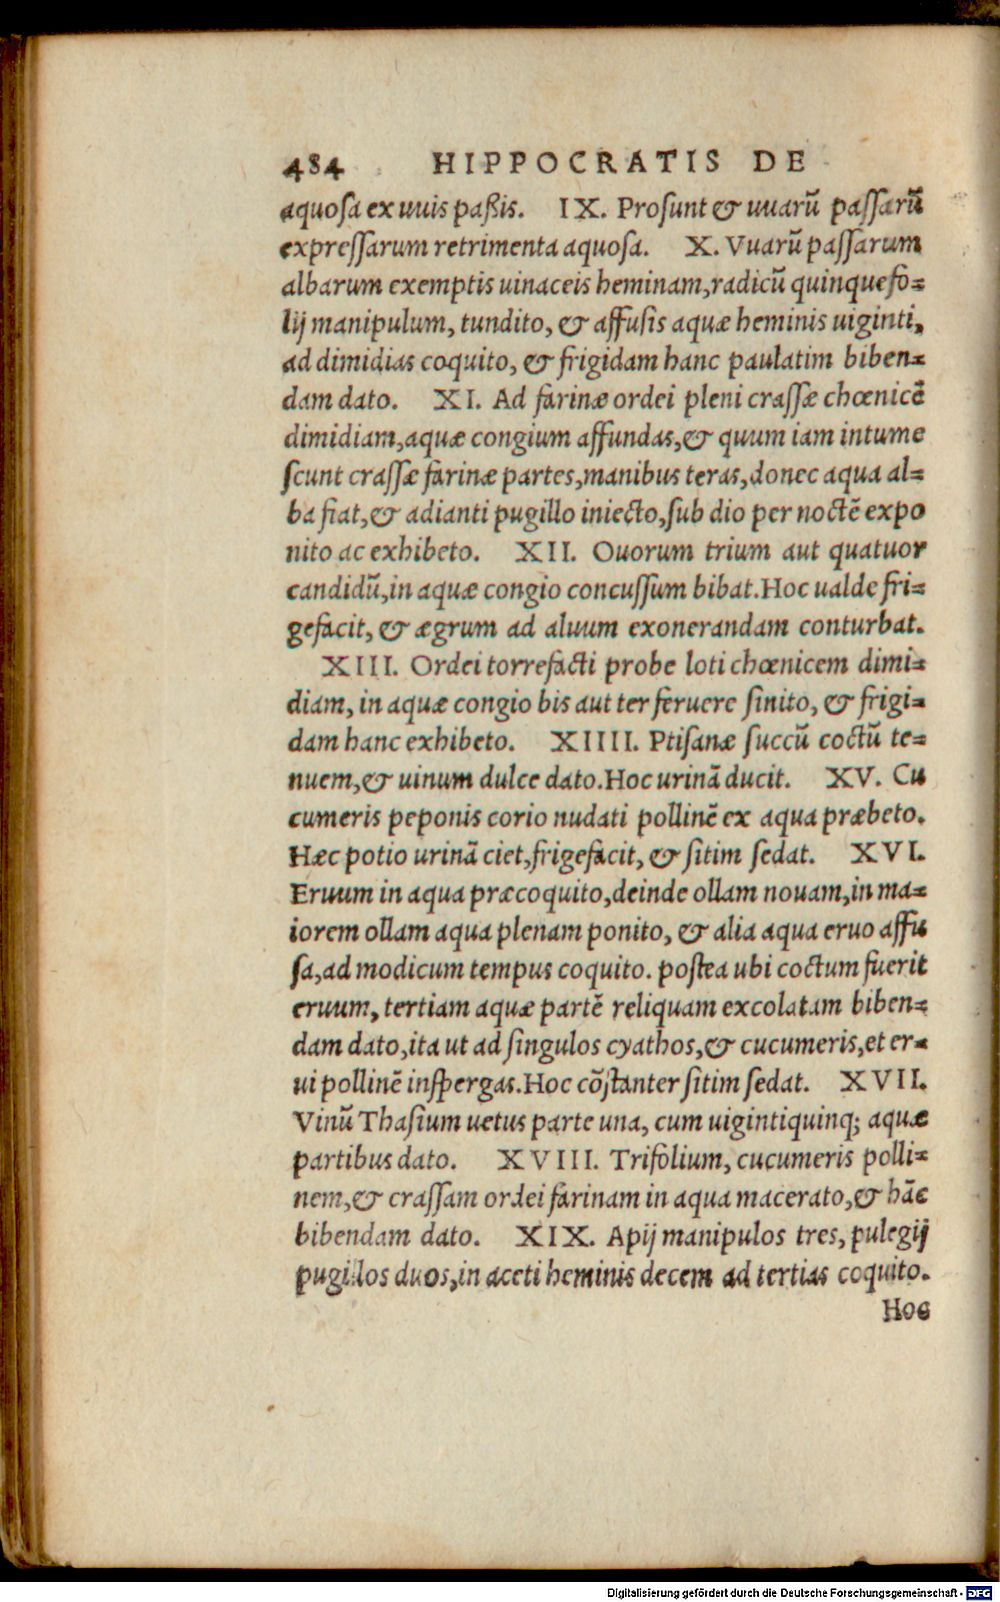 484 HIPPOCRATIS DE
aquosa ex uuis paßis. IX. Prosunt & uuarũ passarũ
expressarum retrimenta aquosa. X. Vuarũ passarum
albarum exemptis uinaceis heminam, radicũ quinquefo=
lij manipulum, tundito, & affusis aquæ heminis uiginti,
ad dimidias coquito, & frigidam hanc paulatim biben=
dam dato. XI. Ad farinæ ordei pleni crassæ chœnicẽ
dimidiam, aquæ congium affundas, & quum iam intume
scunt crassæ farinæ partes, manibus teras, donec aqua al=
ba fiat, & adianti pugillo iniecto, sub dio per noctẽ expo
nito ac exhibeto. XII. Ouorum trium aut quatuor
candidũ, in aquæ congio concussum bibat. Hoc ualde fri=
gefacit, & ægrum ad aluum exonerandam conturbat.
XIII. Ordei torrefacti probe loti chœnicem dimi=
diam, in aquæ congio bis aut ter feruere sinito, & frigi=
dam hanc exhibeto. XIIII. Ptisanæ succũ coctũ te=
nuem, & uinum dulce dato. Hoc urinã ducit. XV. Cu
cumeris peponis corio nudati pollinẽ ex aqua præbeto.
Hæc potio urinã ciet, frigefacit, & sitim sedat. XVI.
Eruum in aqua præcoquito, deinde ollam nouam, in ma=
iorem ollam aqua plenam ponito, & alia aqua eruo affu
sa, ad modicum tempus coquito. postea ubi coctum fuerit
eruum, tertiam aquæ partẽ reliquam excolatam biben=
dam dato, ita ut ad singulos cyathos, & cucumeris, et er=
ui pollinẽ inspergas. Hoc cõstanter sitim sedat. XVII.
Vinũ Thasium uetus parte una, cum uigintiquinq; aquæ
partibus dato. XVIII. Trifolium, cucumeris polli=
nem, & crassam ordei farinam in aqua macerato, & hãc
bibendam dato. XIX. Apij manipulos tres, pulegij
pugillos duos, in aceti heminis decem ad tertias coquito.
Hoc
Digitalisierung gefördert durch die Deutsche Forschungsgemeinschaft - DFG